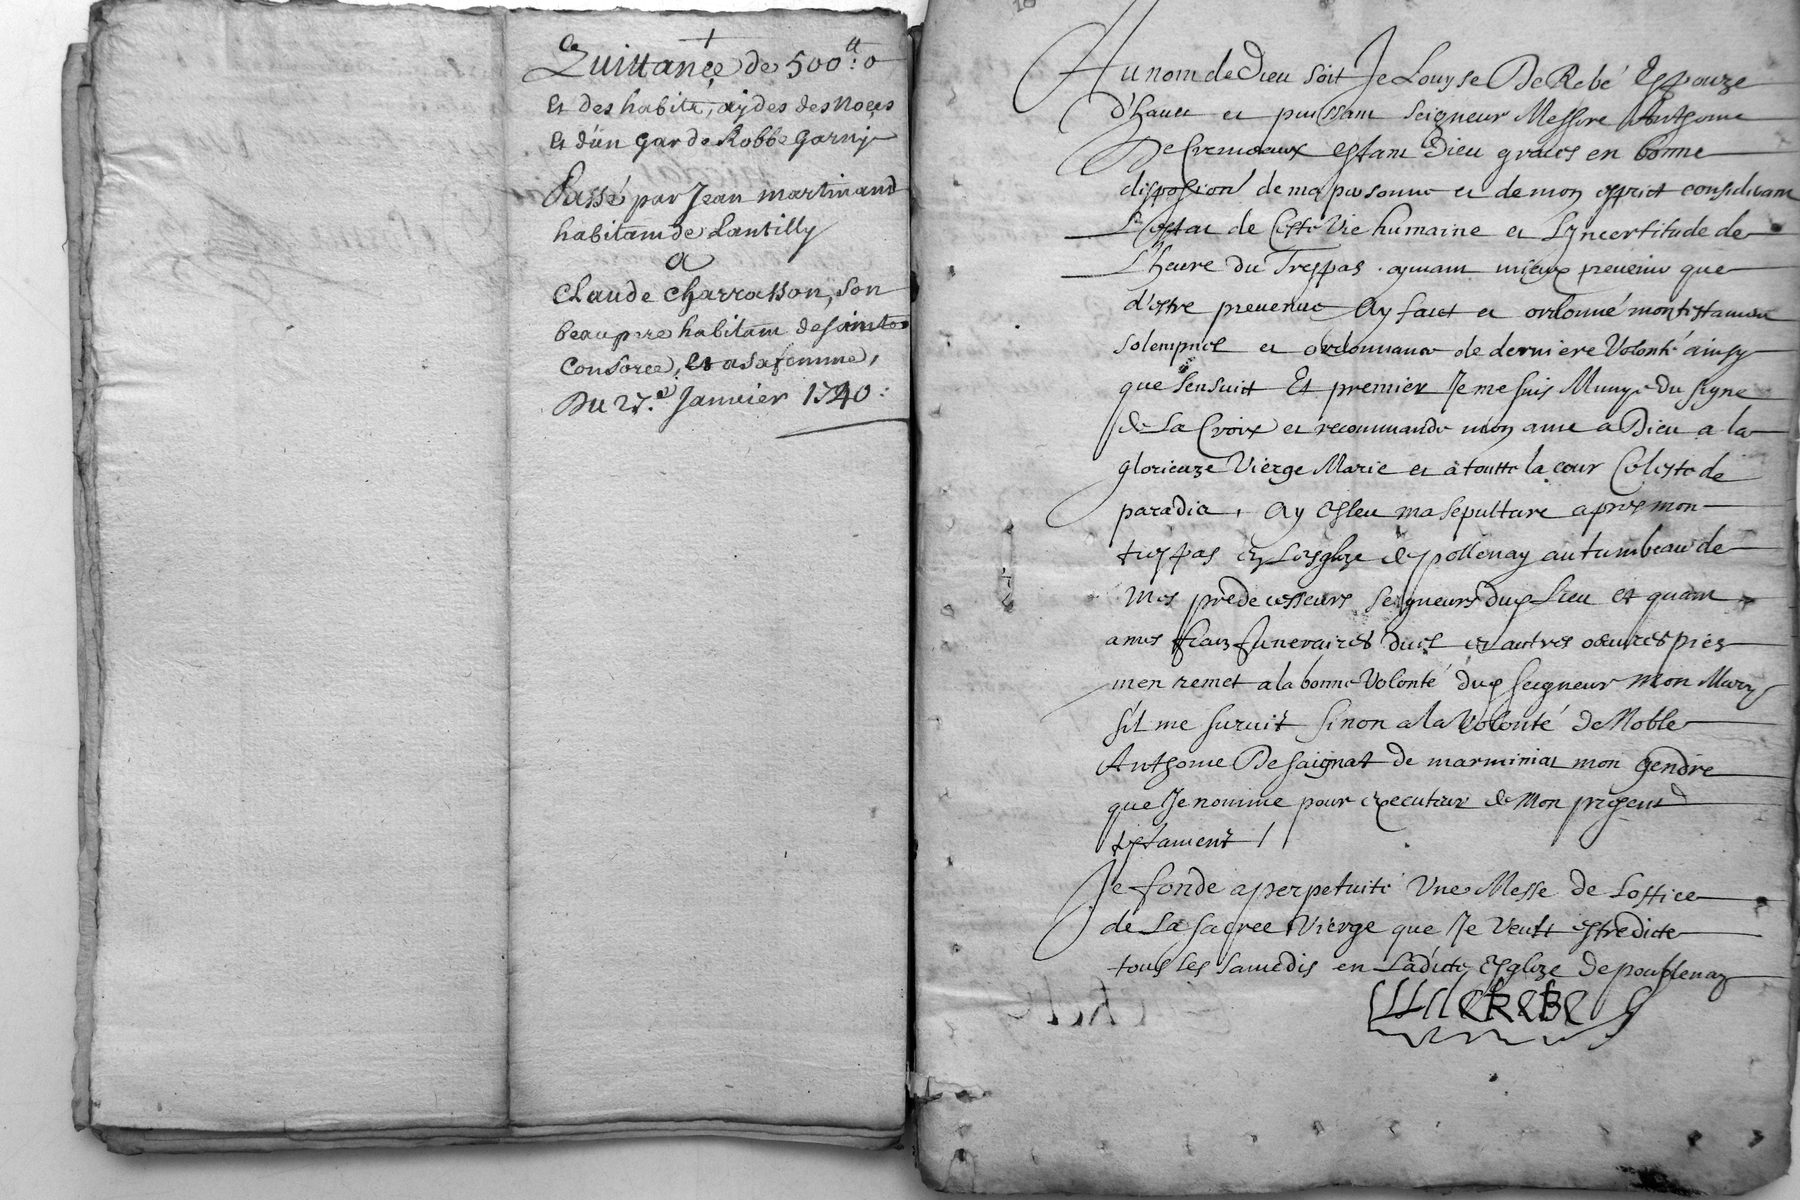 Quittance de 500 ₶: 0
et des habits, aydes des noces
et d'un garde Robbe garny
Passé par Jean martinand
habitant de Lantilly
a
Claude Charrasson, son
beaupere habitant de sainte
Consorce, et a sa femme,
Du 27.e Janvier 1740:
Au nom de Dieu soit Je Louyse De Rebé Espouze
d'hault et puissant seigneur Messire Anthoine
De Cremeaux estant Dieu graces en bonne
disposion de ma personne et de mon esprit considerant
L'estat de Ceste Vie humaine et L'yncertitude de
L'heure du Trespas aymant mieux prevenir que
d'estre prevenue Ay faict et ordonné mon testament
solempnel et ordonnance de derniere Volonté ainsy
que s'ensuitt Et premier Je me suis Munye du signe
de La Croix et recommande mon ame a Dieu a la
glorieuze Vierge Marie et a toutte la cour Celeste de
paradis, Ay esleu ma sepulture apres mon
trespas en L'esglize de pollenay au tumbeau de
Mes predecesseurs seigneurs dud Lieu et quant
a mes fraiz funeraires dueil et autres oeuvres pies
m'en remet a la bonne Volonté dud seigneur mon Mary
s'il me survit sinon a la Volonté de Noble
Anthoine De saignat de marminiat mon gendre
que Je nomme pour executeur de Mon present
testament /
Je fonde a perpetuité Une Messe de L'office
de La sacree Vierge que Je Veult estre dicte
tous les samedis en Ladicte Esglize de poullenay